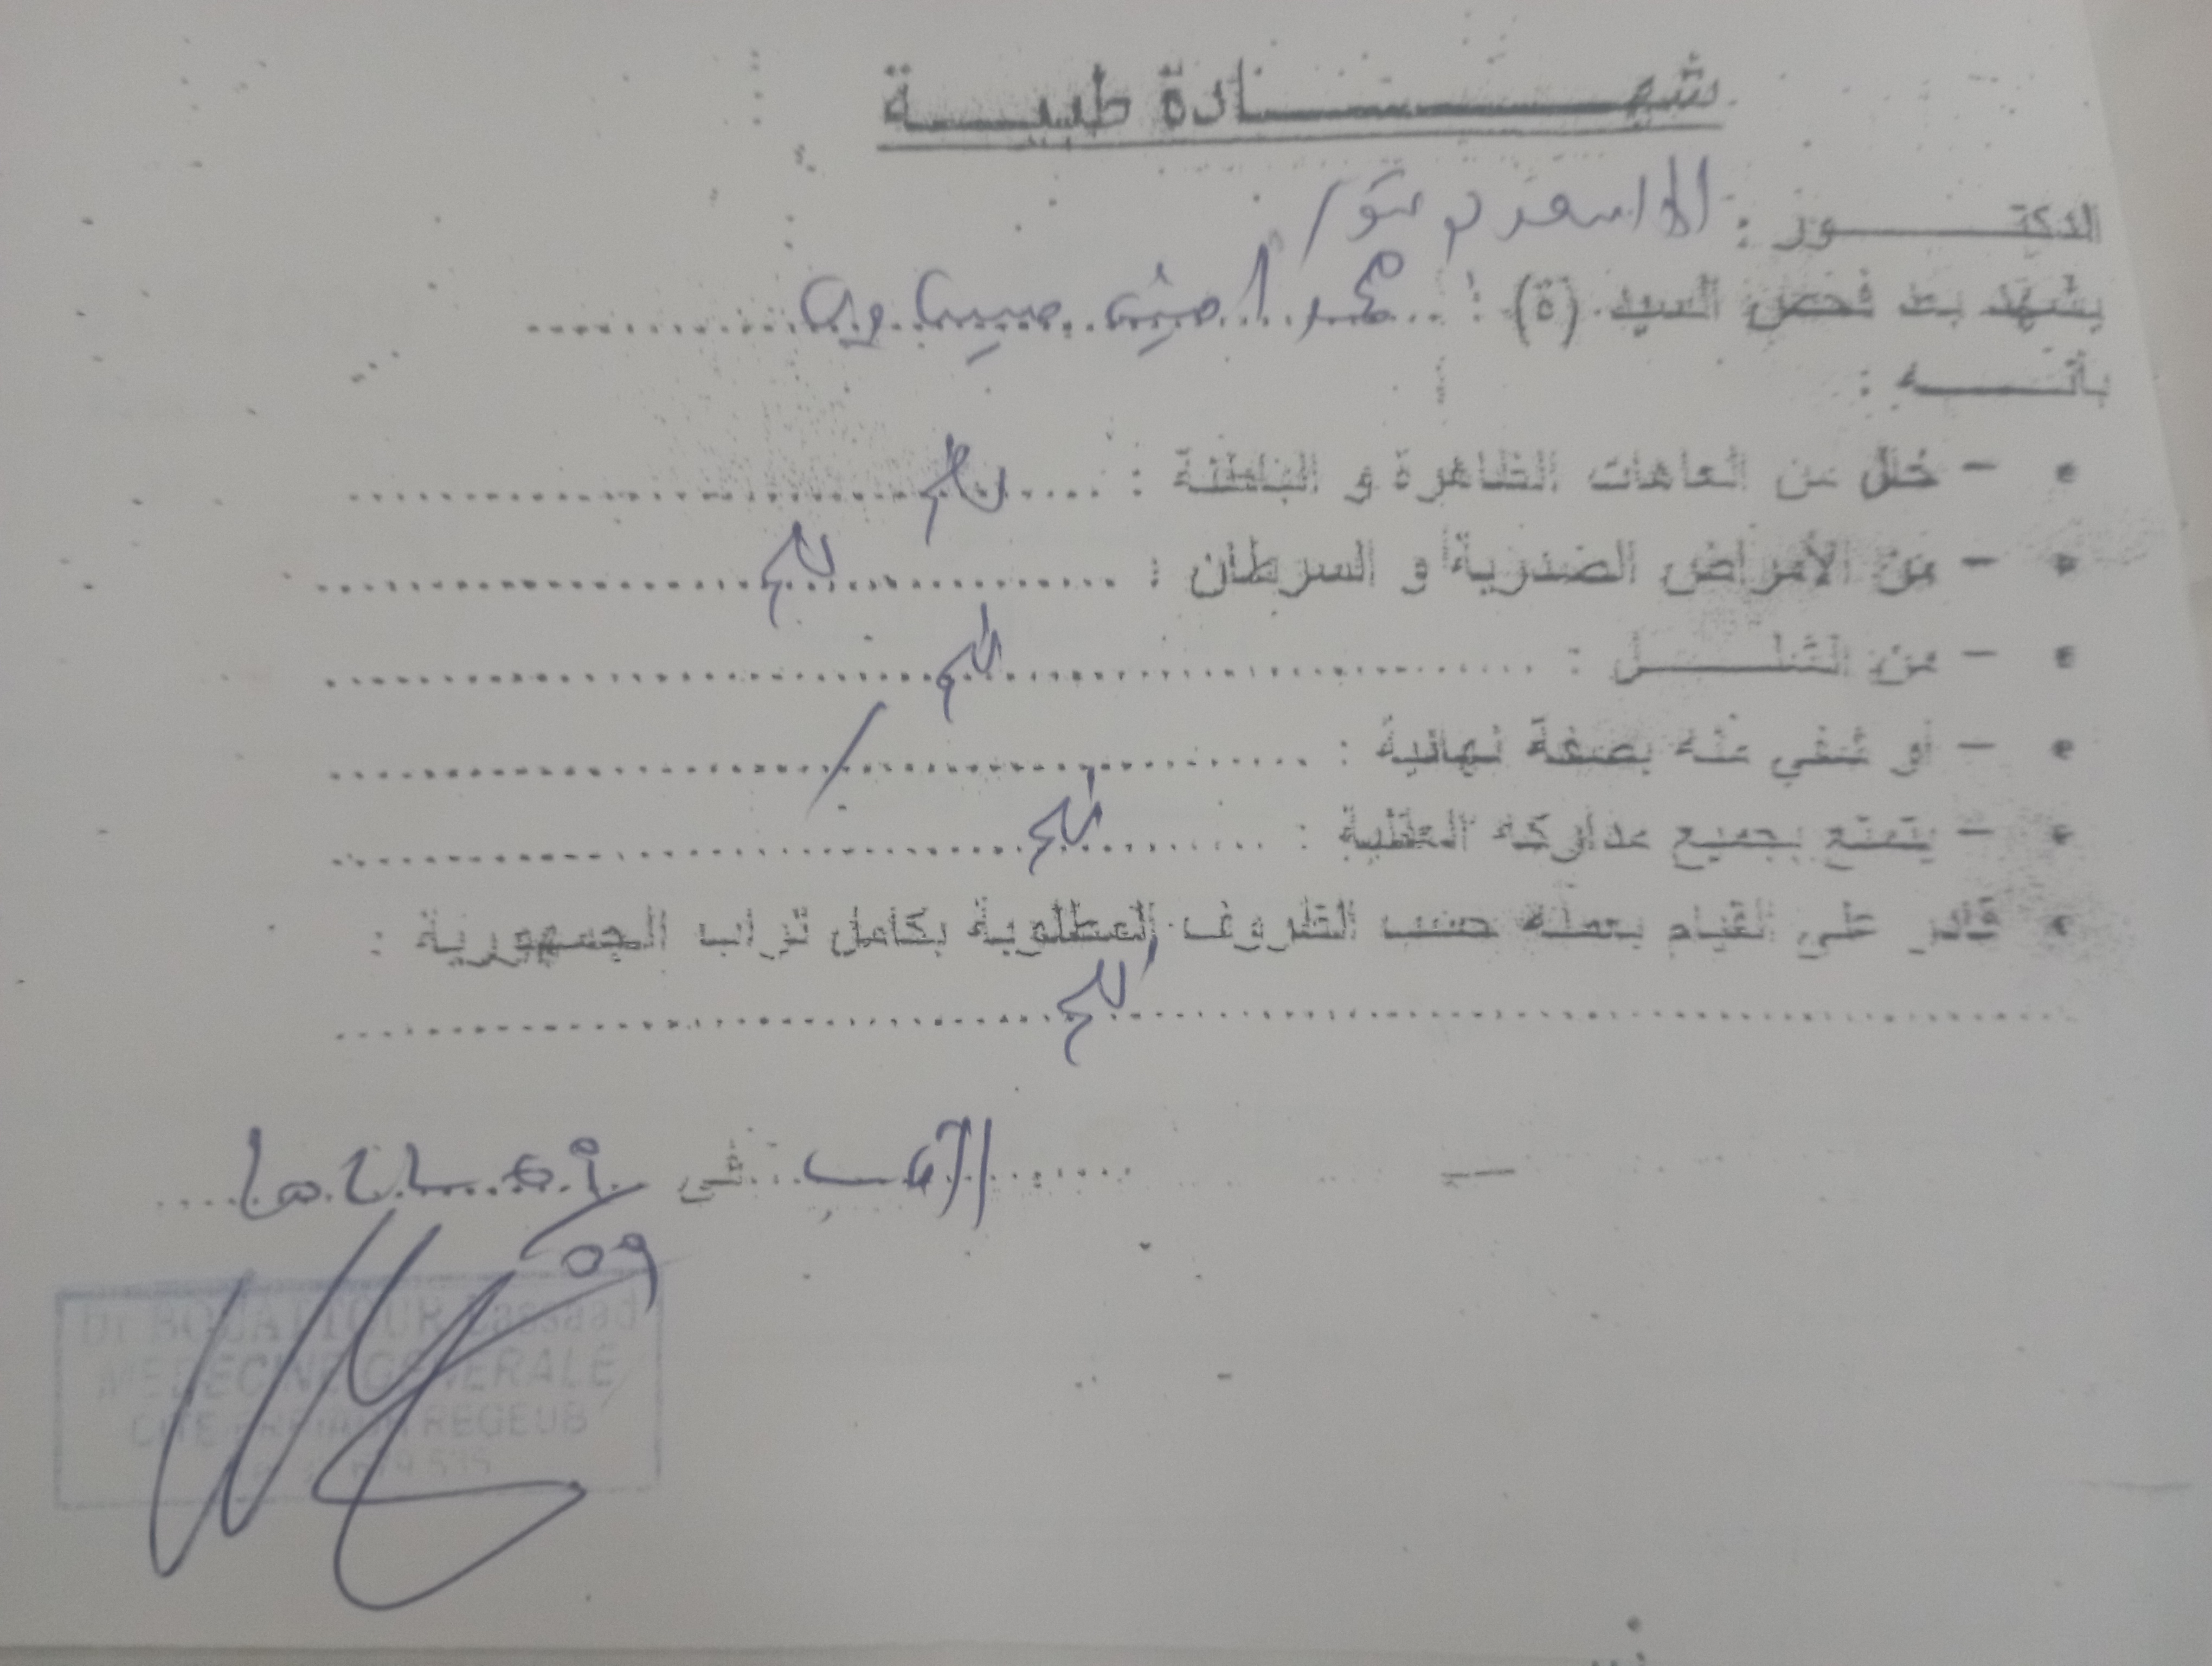 شهـــــادة طبيـــة
الدكتـــــور : الاسعد بوعتور
يشهد بعد فحص السيد (ة) : محمد امين
بأنـــــه :
- خال من العاهات الظاهرة و الباطنة : نعم
- من الأمراض الصدرية و السرطان : نعم
- من الشلـــــل : نعم
- أو شفي منه بصفة نهائية : /
- يتمتع بجميع مداركه العقلية : نعم
قادر على القيام بعمله حسب الظروف المطلوبة بكامل تراب الجمهورية :
نعم
الرقاب في
Dr BOUATTOUR Lassaad
MEDECINE GENERALE
CITE REGEUB